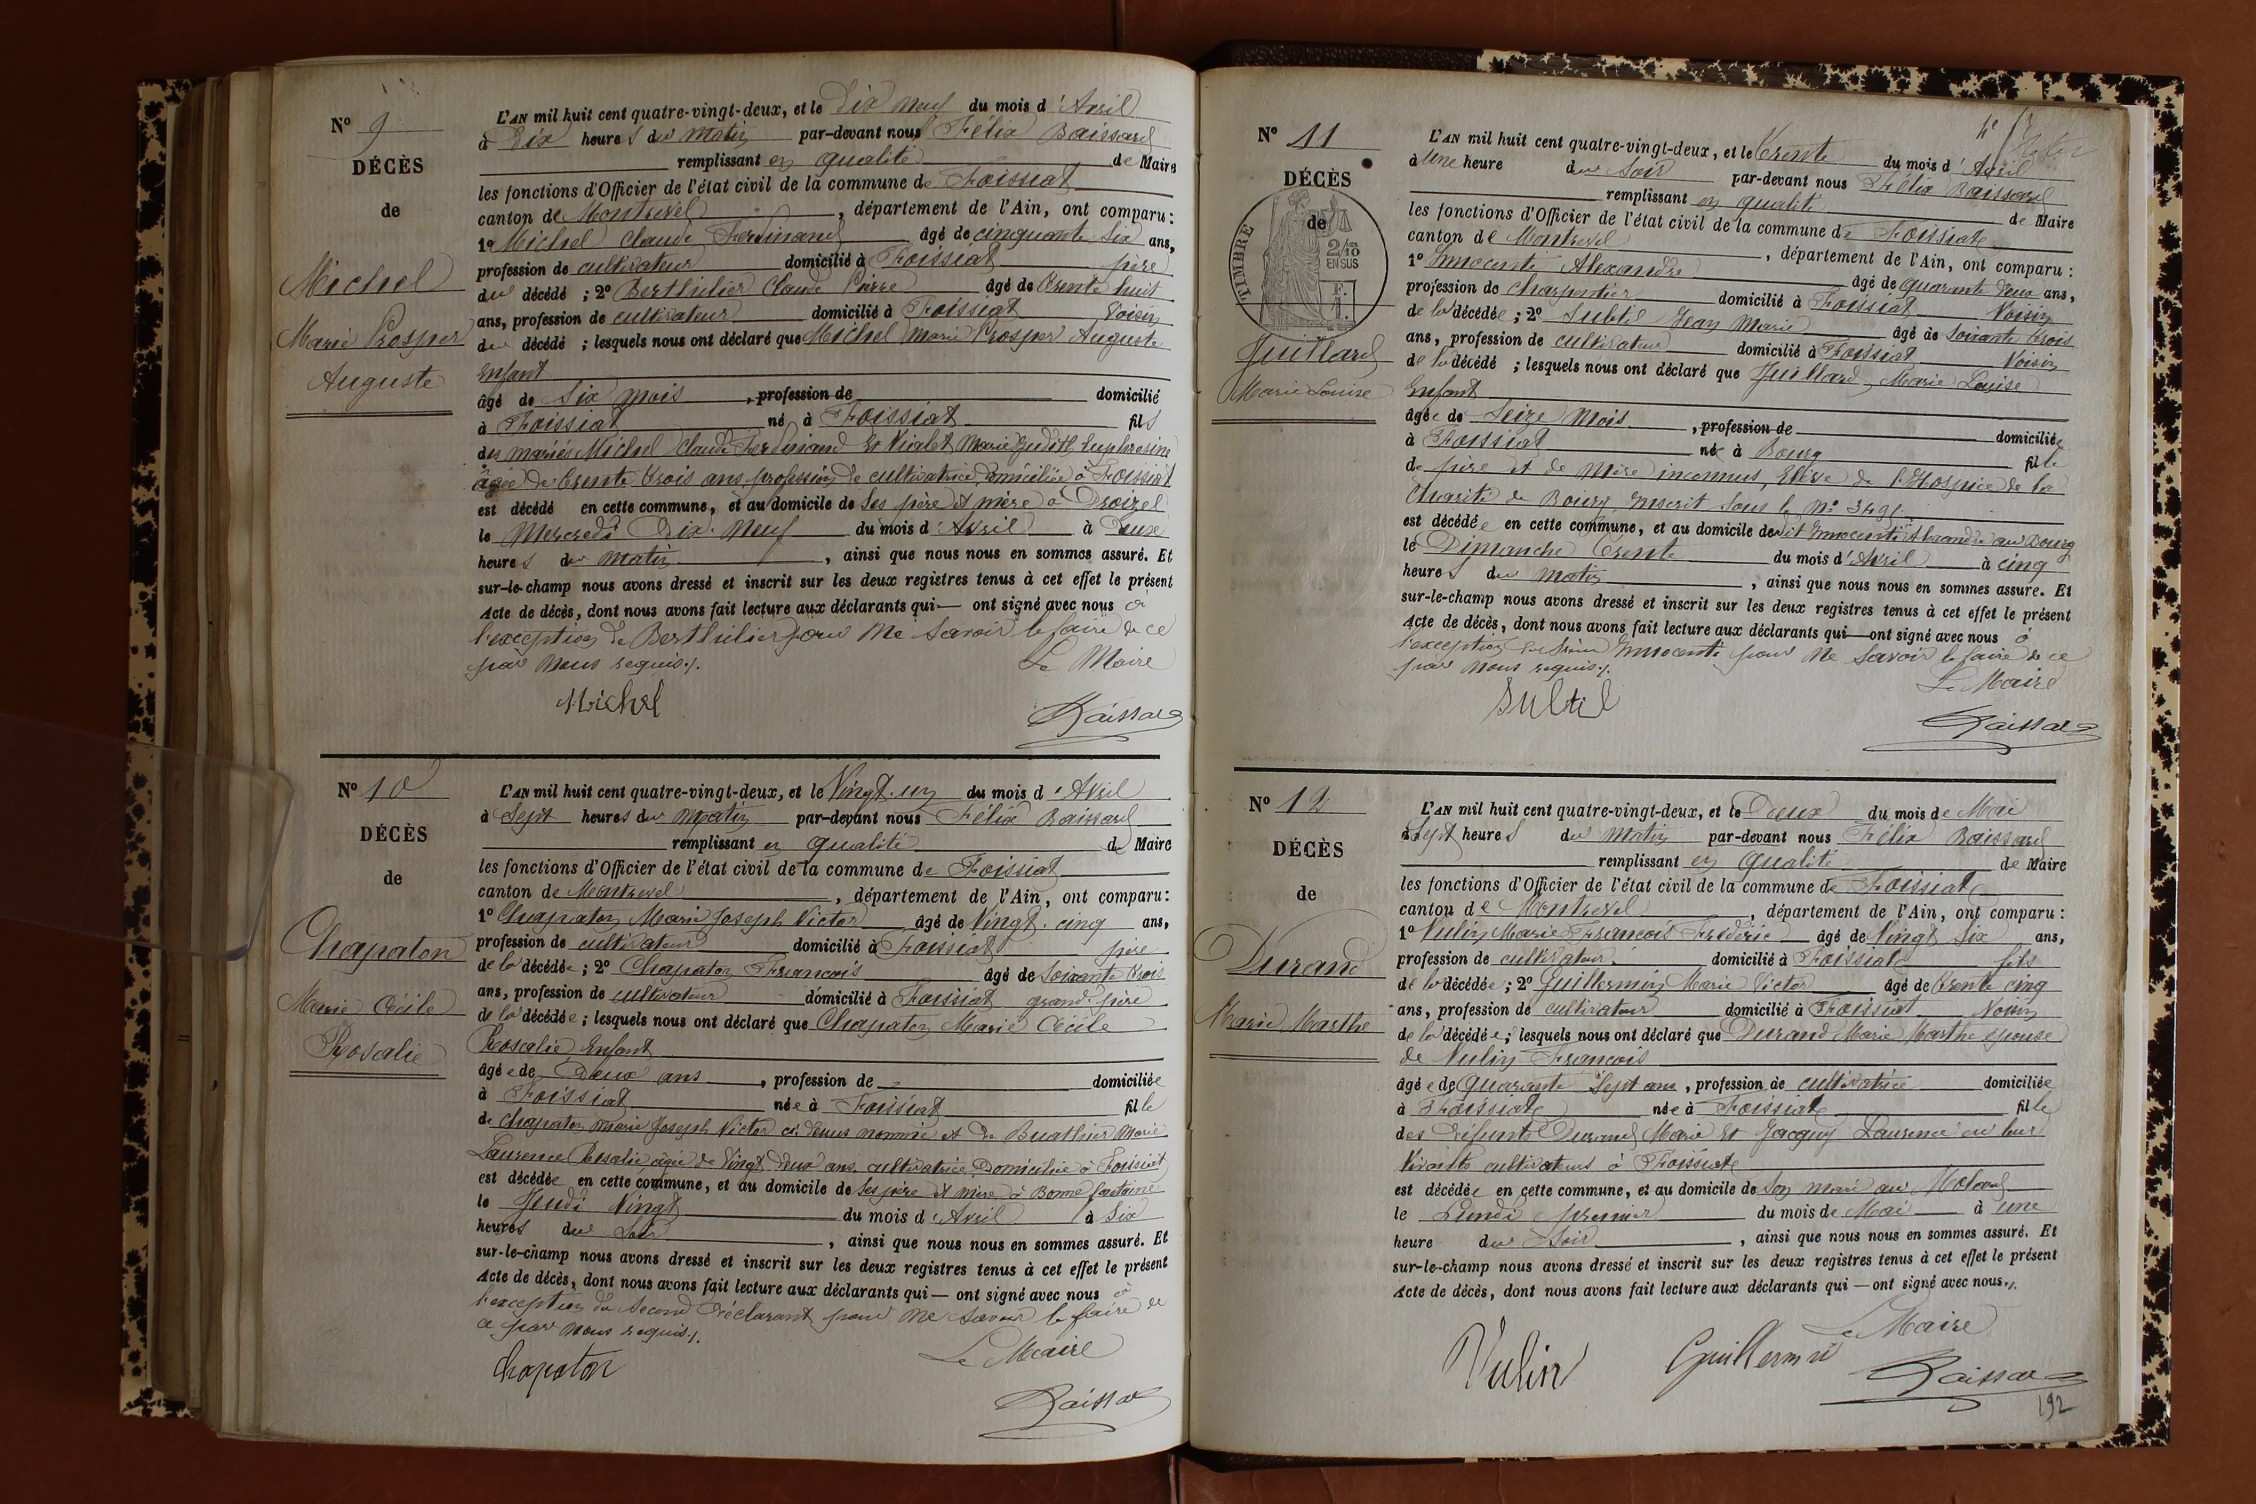 N° 9
DÉCÈS
de
Michel
Marie Prosper
Auguste
L'AN mil huit cent quatre-vingt-deux, et le Dix neuf du mois d'Avril
à Dix heures du matin par-devant nous Félix Baissard
remplissant en qualité de Maire
les fonctions d'Officier de l'état civil de la commune de Foissiat
canton de Montrevel, département de l'Ain, ont comparu :
1° Michel Claude Ferdinand âgé de cinquante Six ans,
profession de cultivateur domicilié à Foissiat père
du décédé ; 2° Berthilier Claude Pierre âgé de Trente huit
ans, profession de cultivateur domicilié à Foissiat Voisin
du décédé ; lesquels nous ont déclaré que Michel Marie Prosper Auguste
Enfant
âgé de Six mois, profession de domicilié
à Foissiat né à Foissiat fils
des mariés Michel Claude Ferdinand Et Vialet Marie Judith Euphrasine
âgée de Trente Trois ans profession de cultivatrice, Domiciliée à Foissiat
est décédé en cette commune, et au domicile de Ses père et mère à Droizel
le Mercredi Dix-Neuf du mois d'Avril à Deux
heures du matin, ainsi que nous nous en sommes assuré. Et
sur-le-champ nous avons dressé et inscrit sur les deux registres tenus à cet effet le présent
Acte de décès, dont nous avons fait lecture aux déclarants qui — ont signé avec nous à
l'exception de Berthilier pour ne Savoir le faire de ce
par nous requis./.
Le Maire
Michel
Baissard
N° 10
DÉCÈS
de
Chapaton
Marie Cécile
Rosalie
L'AN mil huit cent quatre-vingt-deux, et le Vingt-un du mois d'Avril
à Sept heures du matin par-devant nous Félix Baissard
remplissant en qualité de Maire
les fonctions d'Officier de l'état civil de la commune de Foissiat
canton de Montrevel, département de l'Ain, ont comparu :
1° Chapaton Marie Joseph Victor âgé de Vingt-cinq ans,
profession de cultivateur domicilié à Foissiat père
de la décédée ; 2° Chapaton François âgé de Soixante Trois
ans, profession de cultivateur domicilié à Foissiat grand-père
de la décédée ; lesquels nous ont déclaré que Chapaton Marie Cécile
Rosalie Enfant
âgée de Deux ans, profession de domiciliée
à Foissiat née à Foissiat fille
de Chapaton Marie Joseph Victor ci-Dessus nommé et de Buathier Marie
Laurence Rosalie âgée de Vingt Deux ans cultivatrice Domiciliée à Foissiat
est décédée en cette commune, et au domicile de Ses père et mère à Bonne fontaine
le Jeudi Vingt du mois d'Avril à Six
heures du Soir, ainsi que nous nous en sommes assuré. Et
sur-le-champ nous avons dressé et inscrit sur les deux registres tenus à cet effet le présent
Acte de décès, dont nous avons fait lecture aux déclarants qui — ont signé avec nous à
l'exception du Second Déclarant pour ne Savoir le faire de
ce par nous requis./.
Le Maire
Chapaton
Baissard
N° 11
DÉCÈS
de
TIMBRE
2/10
EN SUS
Juillard
Marie Louise
L'AN mil huit cent quatre-vingt-deux, et le Trente du mois d'Avril
à Une heure du Soir par-devant nous Félix Baissard
remplissant en qualité de Maire
les fonctions d'Officier de l'état civil de la commune de Foissiat
canton de Montrevel, département de l'Ain, ont comparu :
1° Innocenti Alexandre âgé de quarante Deux ans,
profession de charpentier domicilié à Foissiat Voisin
de la décédée ; 2° Subtil Jean Marie âgé de Soixante Trois
ans, profession de cultivateur domicilié à Foissiat Voisin
de la décédé ; lesquels nous ont déclaré que Juillard Marie Louise
Enfant
âgée de Seize Mois, profession de domiciliée
à Foissiat née à Bourg fille
de père et de Mère inconnus, Elève de l'Hospice de la
Charité de Bourg Inscrit Sous le N° 3491
est décédée en cette commune, et au domicile dudit Innocenti Alexandre au Bourg
le Dimanche Trente du mois d'Avril à cinq
heures du matin, ainsi que nous nous en sommes assuré. Et
sur-le-champ nous avons dressé et inscrit sur les deux registres tenus à cet effet le présent
Acte de décès, dont nous avons fait lecture aux déclarants qui — ont signé avec nous à
l'exception du Sieur Innocenti pour ne Savoir le faire de ce
par nous requis./.
Le Maire
Subtil
Baissard
N° 12
DÉCÈS
de
Durand
Marie Marthe
L'AN mil huit cent quatre-vingt-deux, et le Deux du mois de Mai
à Sept heures du matin par-devant nous Félix Baissard
remplissant en qualité de Maire
les fonctions d'Officier de l'état civil de la commune de Foissiat
canton de Montrevel, département de l'Ain, ont comparu :
1° Vulin Marie François Fréderic âgé de Vingt Six ans,
profession de cultivateur domicilié à Foissiat fils
de la décédée ; 2° Guillermin Marie Victor âgé de Trente cinq
ans, profession de cultivateur domicilié à Foissiat Voisin
de la décédée ; lesquels nous ont déclaré que Durand Marie Marthe épouse
de Vulin François
âgée de Quarante Sept ans, profession de cultivatrice domiciliée
à Foissiat née à Foissiat fille
des Défunts Durand Marie Et Jacquy Laurence en leur
Vivants cultivateurs à Foissiat
est décédée en cette commune, et au domicile de Son mari au
le Lundi premier du mois de Mai à une
heure du Soir, ainsi que nous nous en sommes assuré. Et
sur-le-champ nous avons dressé et inscrit sur les deux registres tenus à cet effet le présent
Acte de décès, dont nous avons fait lecture aux déclarants qui — ont signé avec nous./.
Le Maire
Vulin
Guillermin
Baissard
192